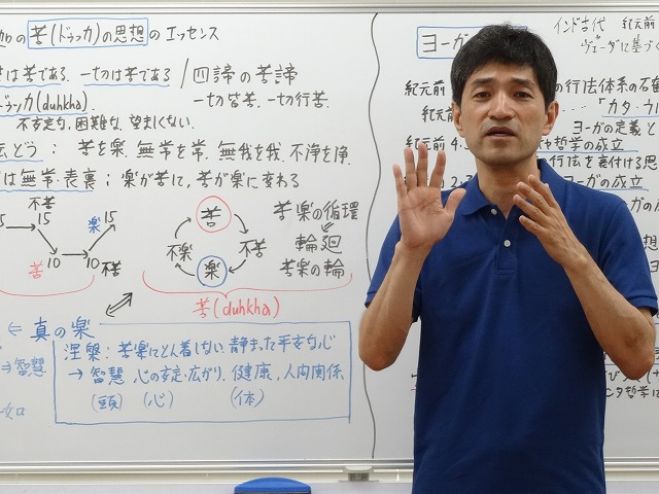 の苦(ドゥッカ)の思想のエッセンス
は苦である、一切は苦である / 四諦の苦諦
ドゥッカ(duhkha) 一切皆苦、一切行苦
不安定な、困難な、望ましくない。
どう : 苦を楽、無常を常、無我を我、不浄を浄
は無常・表裏 ; 楽が苦に、苦が楽に変わる
不苦
15 15 楽 15
10 10 不苦
苦
苦
不楽 不苦
楽
苦楽の循環
輪廻
苦楽の輪
苦(duhkha)
⇐ 真の楽
涅槃 : 苦楽にとん着しない静まった平安な心
→ 智慧 心の安定・広がり、健康、人間関係
(頭) (心) (体)
⇒智慧
インド古代 紀元前
ヴェーダに基づく
ヨーガ
紀元前 の行法体系の
紀元前 「カタ・ウ
ヨーガの定義と
紀元前 4- 哲学の成立
行法を裏付ける思
紀元前 2- ヨーガの成立